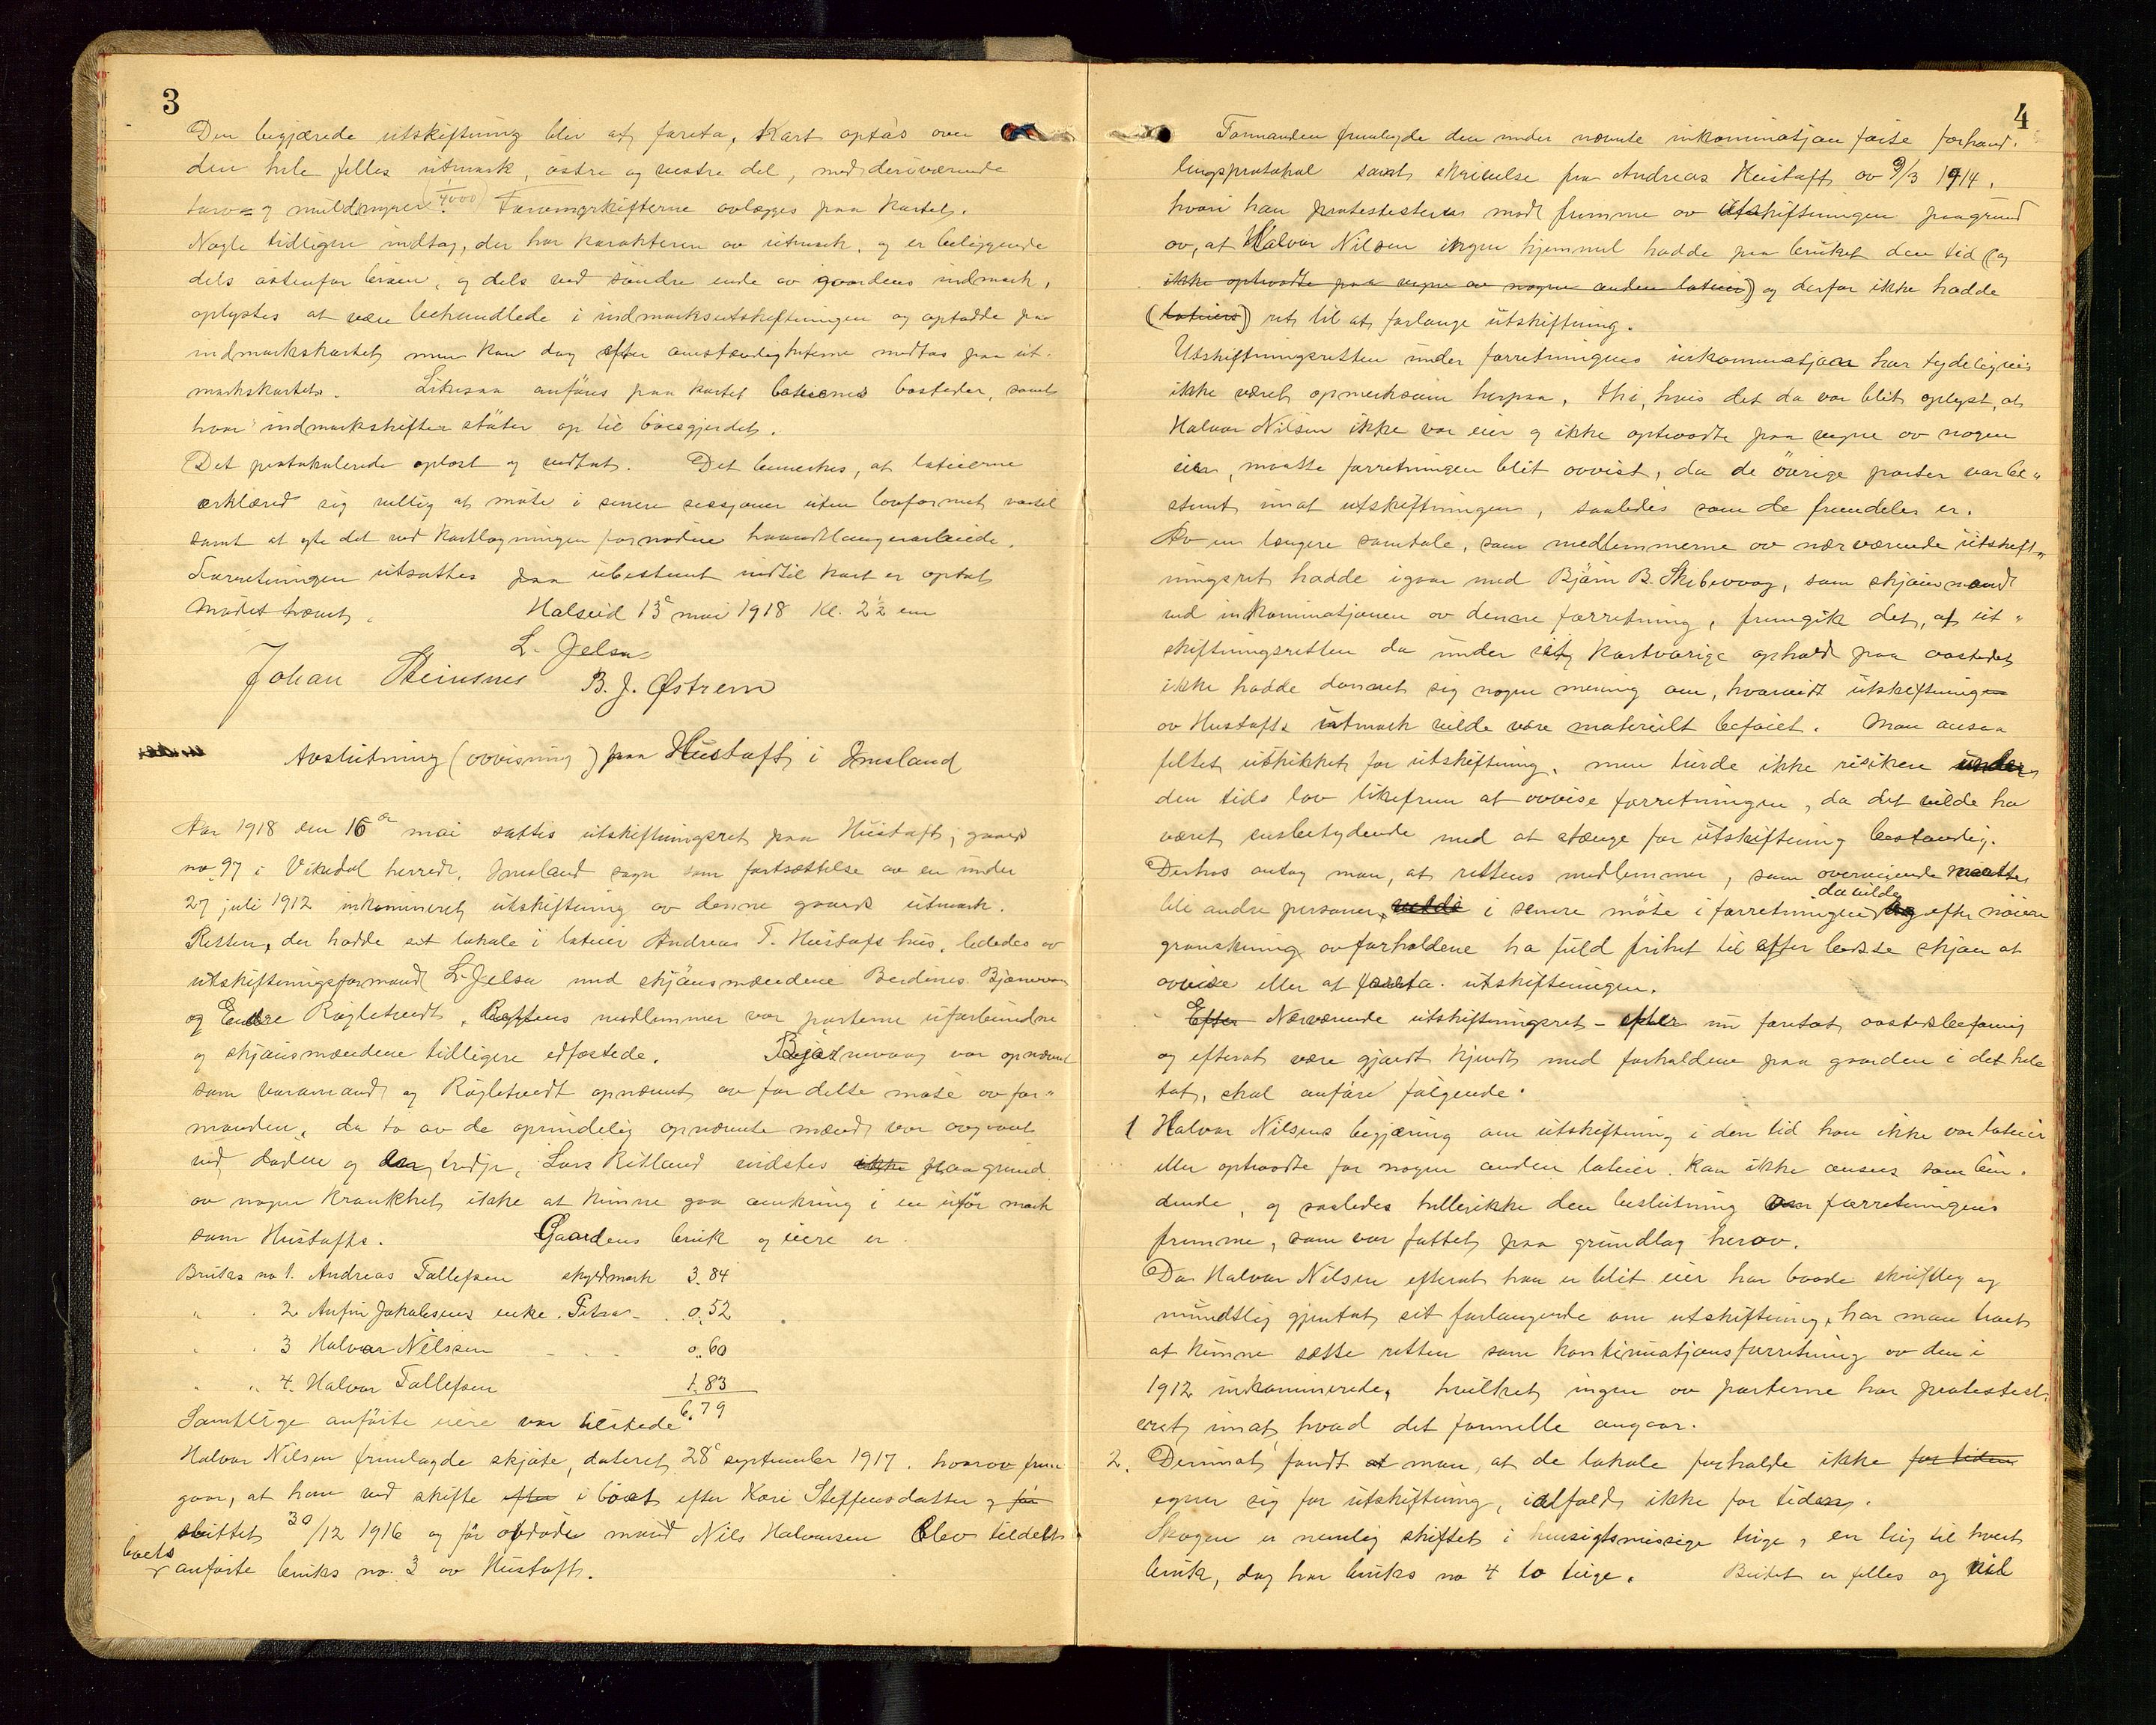 3
Den begjærede utskiftning blir at foreta. Kart optas over
den hele felles utmark, østre og vestre del, med deriværende
torv- og muldmyrer (1/4000). Torvmyrskifterne avlægges paa kartet.
Nogle tidligere indtag, der har karakteren av utmark, og er beliggende
dels østenfor bruen, og dels ved søndre ende av gaardens indmark,
oplystes at være behandlede i indmarksutskiftningen og optatte paa
indmarkskartet men kan dog efter omstændigheterne medtas paa ut-
markskartet. Likesaa anføres paa kartet lateiernes bosteder, samt
hvor indmarkskifter støter op til bøesgjerdet.
Det protokolerede oplæst og vedtat. Det bemerkes, at lateierne
erklæred sig villig at møte i senere sessjoner uten lovformet varsel
samt at yte det ved kartlægningen fornødne haandtlangerarbeide.
Forretningen utsattes paa ubestemt indtil kart er optat
Mødet hævet. Halseid 13de mai 1918 kl. 2 1/2 em
L. Jelsa
Johan Steinsnes B. J. Østrem
Avslutning (avvisning) paa Hustoft i Imsland
Aar 1918 den 16de mai sattes utskiftningsret paa Hustoft, gaard
no 97 i Vikedal herred, Imsland sogn som fortsættelse av en under
27 juli 1912 inkamineret utskiftning av denne gaards utmark.
Retten, der hadde sit lokale i lateier Andreas T. Hustofts hus, lededes av
utskiftningsformand L. Jelsa med skjønsmændene Berdines Bjørnevaag
og Endre Røgletvedt. Rettens medlemmer var parterne uforbundne
og skjønsmændene tidligere edfæstede. Bjørnevaag var opnævnt
som varamand og Røgletvedt opnævnt av for dette møte av for-
manden, da to av de oprindelig opnævnte mænd var avgaaet
ved døden og den tredje, Lars Ritland vidstes ikke paa grund
av nogen krankhet ikke at kunne gaa omkring i en ufør mark
som Hustofts. Gaardens bruk og eiere er
Bruks no 1. Andreas Tollefsen skyldmark 3.84
" " 2 Anfin Jakobsens enke. Petra - . 0.52
" " 3 Halvor Nilssen - - - 0.60
" " 4. Halvor Tollefsen 1.83
6.79
Samtlige anførte eiere var tilstede
Halvor Nilsen fremlagde skjøte, dateret 28de september 1917. hvorav frem-
gaar, at han ved skifte efter i boet efter Kari Steffensdatter og før
sluttet 30/12 1916 og før avdøde mand Nils Halvorsen blev tildelt
boets anførte bruks no. 3 av Hustoft.
4
Formanden fremlagde den under nævnte inkaminatjon førte forhand-
lingsprotokol samt skrivelse fra Andreas Hustoft av 9/3 1914,
hvori han protestesterer mod fremme av utskiftningen paagrund
av, at Halvor Nilsen ingen hjemmel hadde paa bruket den tid (og
ikke optraadte paa vegne av nogen anden lateier) og derfor ikke hadde
(lateiers) ret til at forlange utskiftning.
Utskiftningsretten under forretningens inkaminatjon har tydeligvis
ikke været opmerksom herpaa, thi, hvis det da var blit oplyst, at
Halvor Nilsen ikke var eier og ikke optraadte paa vegne av nogen
eier, maatte forretningen blit avvist, da de øvrige parter var be-
stemt imot utskiftningen, saaledes som de fremdeles er.
Av en længere samtale, som medlemmerne av nærværende utskift-
ningsret hadde igaar med Bjørn B. Skibevaag, som skjønsmand
ved inkaminatjonen av denne forretning, fremgik det, at ut-
skiftningsretten da under sit kortvarige ophold paa aastedet
ikke hadde dannet sig nogen mening om, hvorvidt utskiftningen
av Hustofts utmark vilde være materielt beføiet. Man ansaa
feltet uskikket for utskiftning, men turde ikke risikere under
den tids lov likefrem at avvise forretningen, da det vilde ha
været ensbetydende med at stænge for utskiftning bestandig.
Derhos antog man, at rettens medlemmer, som overveiende maatte
bli andre personer, vilde i senere møte i forretningen da vilde og efter nøiere
granskning av forholdene ha fuld frihet til efter bedste skjøn at
avvise eller at foreta utskiftningen.
Efter Nærværende utskiftningsret - efter nu foretat aastedsbefaring
og efterat være gjordt kjendt med forholdene paa gaarden i det hele
tat, skal anføre følgende:
1 Halvor Nilsens begjæring om utskiftning i den tid han ikke var lateier
eller optraadte for nogen anden lateier. kan ikke ansees som bin-
dende, og saaledes hellerikke den beslutning om forretningens
fremme, som var fattet paa grundlag herav.
Da Halvor Nilsen efterat han er blit eier har baade skriftlig og
mundtlig gjentat sit forlangende om utskiftning, har man troet
at kunne sætte retten som kontinuatjonsforretning av den i
1912 inkaminerede, hvilket ingen av parterne har protestest-
eret imot, hvad det formelle angaar.
2. Derimot fandt at man, at de lokale forholde ikke for tiden
egner sig for utskiftning, ialfald ikke for tiden.
Skogen er nemlig skiftet i hensigtsmæssige teige, en teig til hvert
bruk, dog har bruks no 4 to teige. Beitet er felles og vil